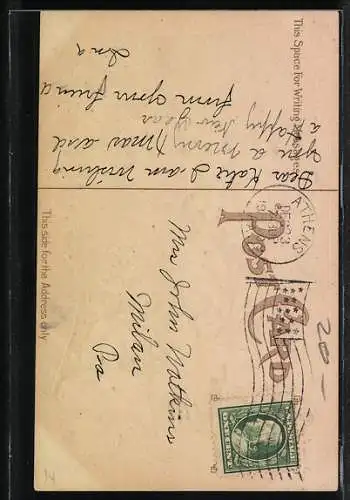 This Space for Writing Messages
Dear Katie I am wishing
you a merry Xmas and
a Happy New Year
from your friend
Ina
POST CARD
ATHENS
DEC 23
This side for the Address only
Mrs John Watkins
Milan
Pa
20 -